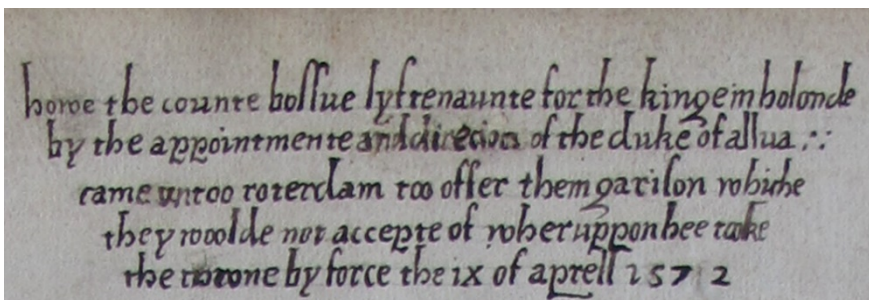 howe the counte bossue lyftenaunte for the kinge in holonde
by the appointmente and direction of the duke of allua ∴
came untoo roterdam too offer them garison whiche
they woolde not accepte of wheruppon hee take
the towne by force the ix of aprell 1572